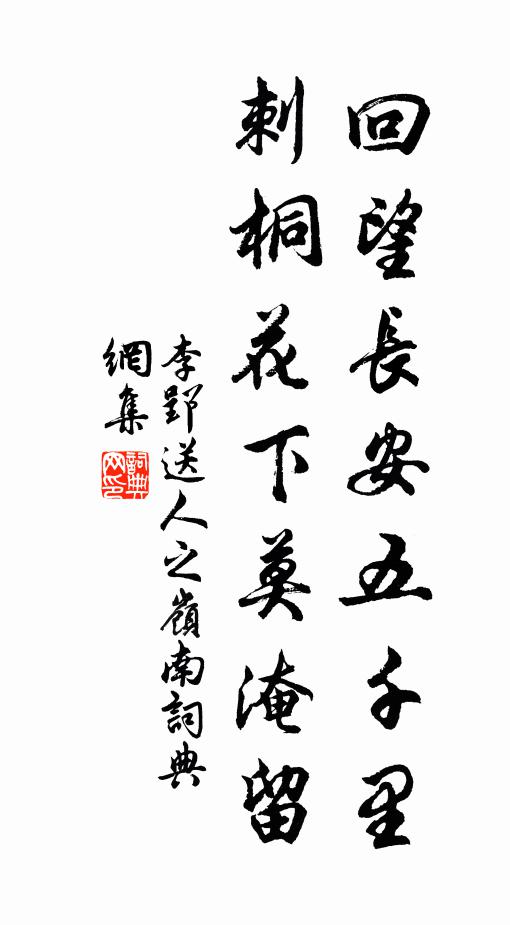 回望長安五千里
刺桐花下莫淹留
李郢送人之嶺南詞典
網集
詞典
网印